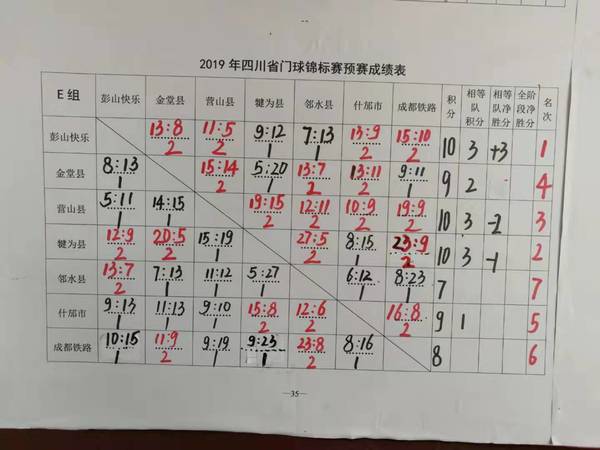 2019 年四川省门球锦标赛预赛成绩表
E 组 彭山快乐 金堂县 营山县 犍为县 邻水县 什邡市 成都铁路 积分 相等队积分 相等队净胜分 全阶段净胜分 名次
彭山快乐 13:8 2 11:5 2 9:12 1 7:13 1 13:9 2 15:10 2 10 3 +3 1
金堂县 8:13 1 15:14 2 5:20 1 13:7 2 13:11 2 9:11 1 9 2 4
营山县 5:11 1 14:15 1 19:15 2 12:11 2 10:9 2 19:9 2 10 3 -2 3
犍为县 12:9 2 20:5 2 15:19 1 27:5 2 8:15 1 23:9 2 10 3 -1 2
邻水县 13:7 2 7:13 1 11:12 1 5:27 1 6:12 1 8:23 1 7 7
什邡市 9:13 1 11:13 1 9:10 1 15:8 2 12:6 2 16:8 2 9 1 5
成都铁路 10:15 1 11:9 2 9:19 1 9:23 1 23:8 2 8:16 1 8 6
—35—